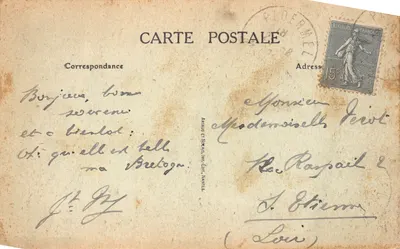 PLOERMEL
CARTE POSTALE
Correspondance
Adresse
15
Bonjour, bons
souvenirs
et à bientôt.
Oh qu'elle est belle
ma Bretagne
Monsieur
Mesdemoiselle
Rue Raspail 2
St. Etienne
(Loire)